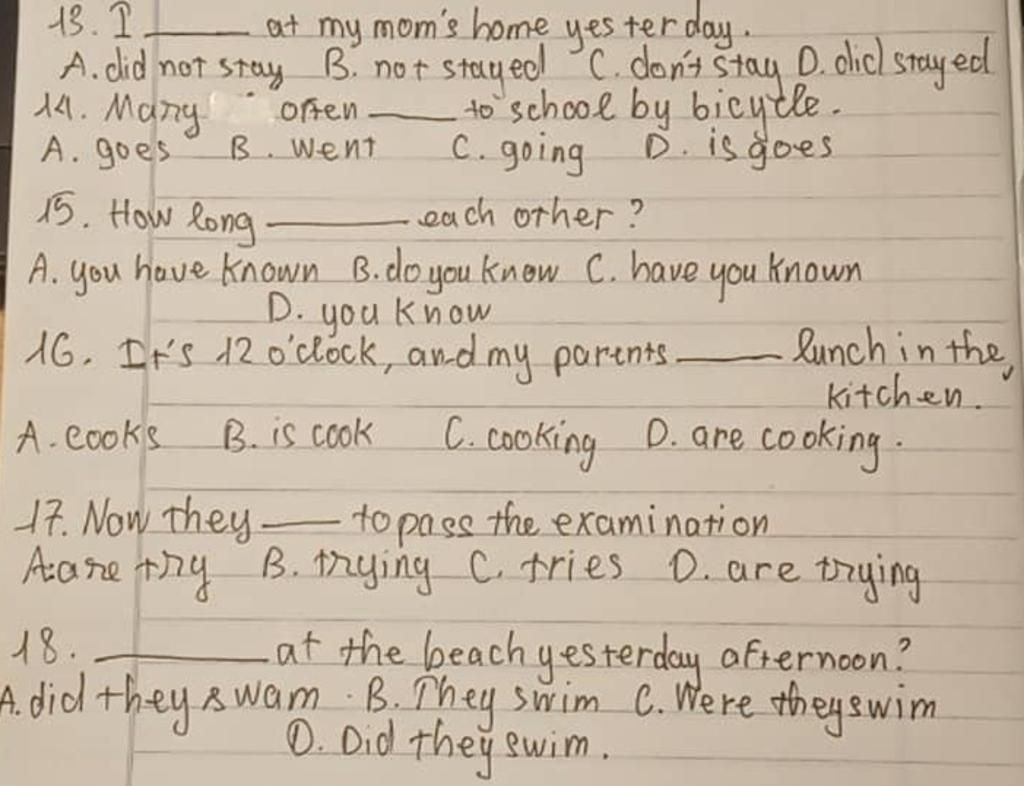 13. I ______ at my mom's home yesterday.
A. did not stay B. not stayed C. don't stay D. did stayed
14. Mary often ______ to school by bicycle.
A. goes B. went C. going D. is goes
15. How long ______ each other?
A. you have known B. do you know C. have you known
D. you know
16. It's 12 o'clock, and my parents ______ lunch in the,
kitchen.
A. cooks B. is cook C. cooking D. are cooking.
17. Now they ______ to pass the examination
A. are try B. trying C. tries D. are trying
18. ______ at the beach yesterday afternoon?
A. did they swam. B. They swim C. Were they swim
D. Did they swim.